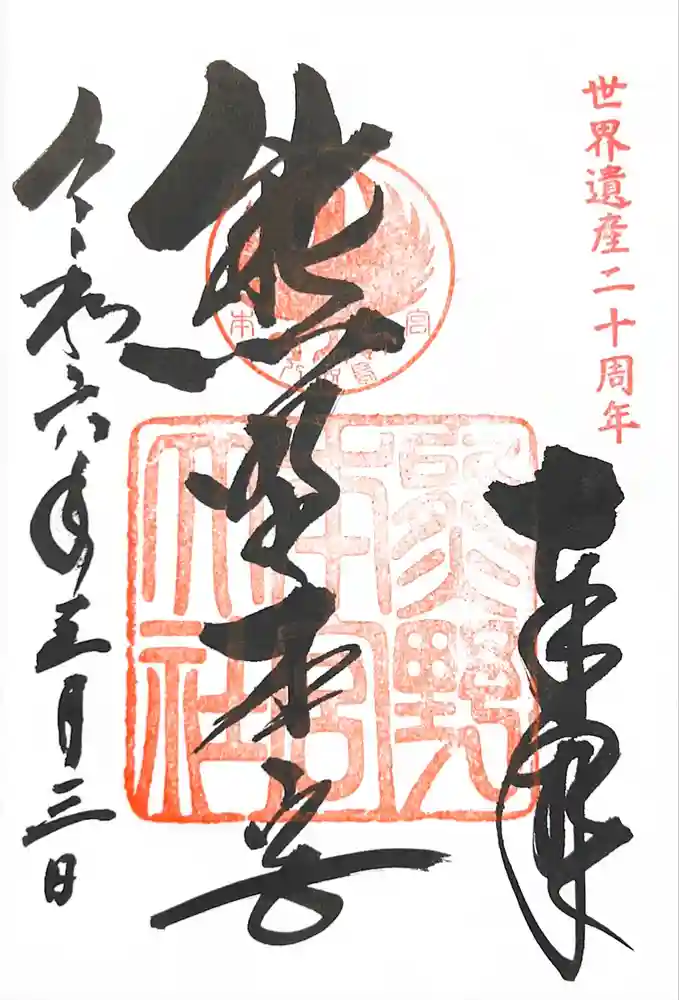 世界遺産二十周年
奉拝
熊野本宮
熊野本宮大社
令和六年三月三日